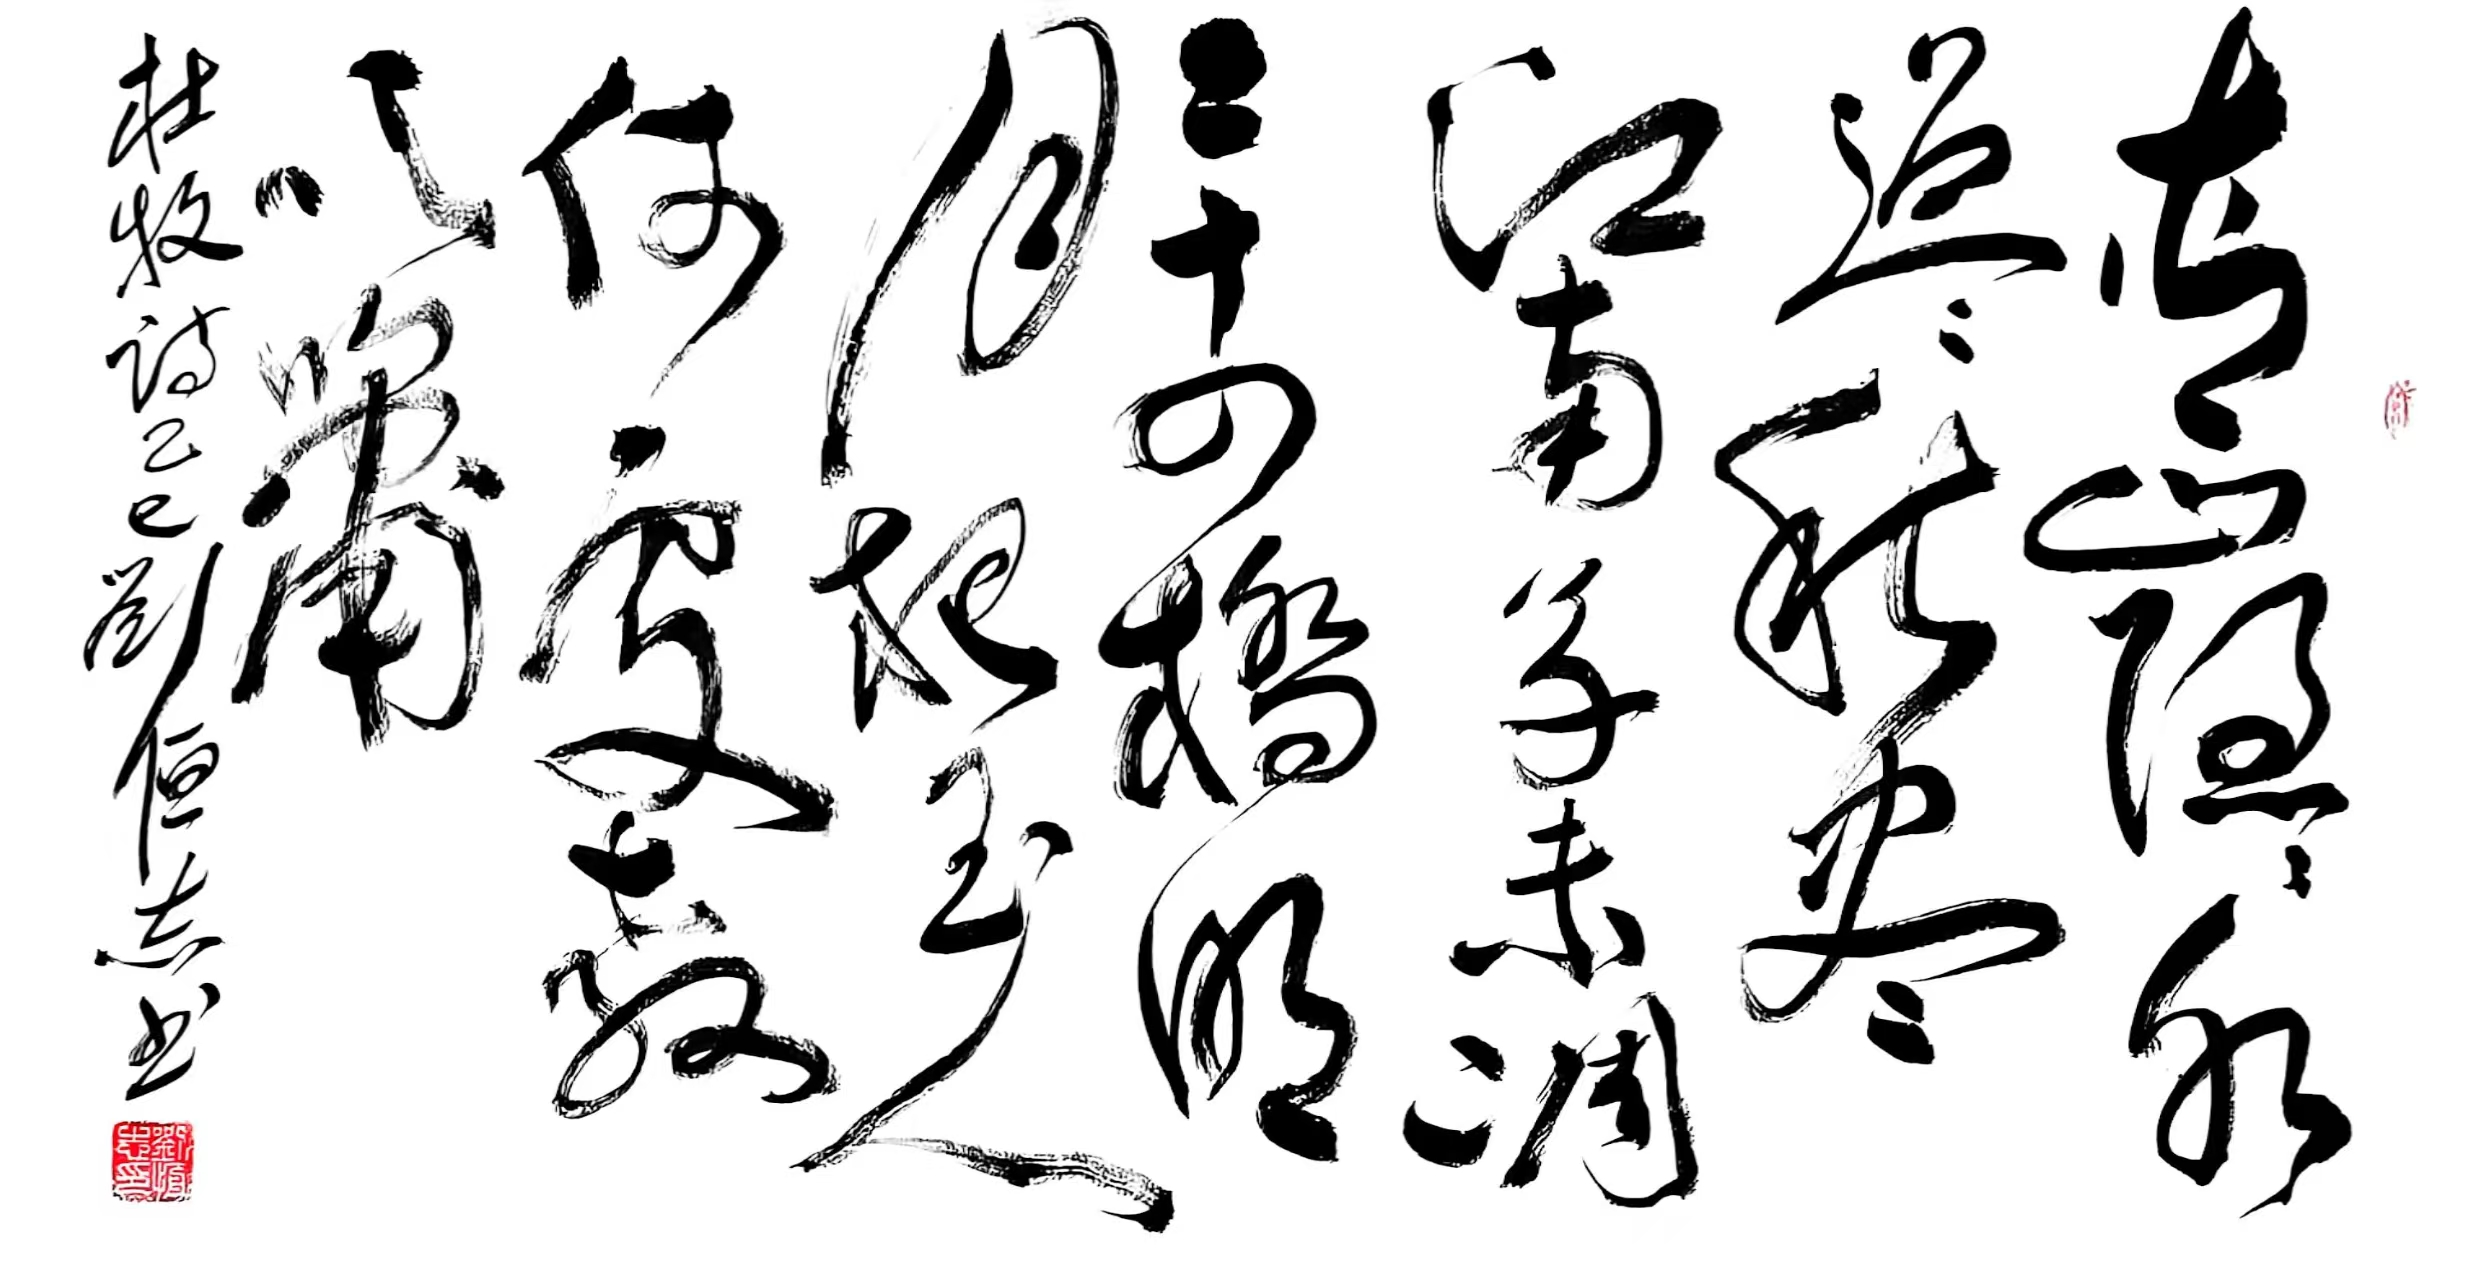 青山隐隐水
迢迢秋尽
江南草未凋
二十四橋明
月夜玉人
何處教
吹簫
杜牧诗乙巳劉恒志书
劉恒志印